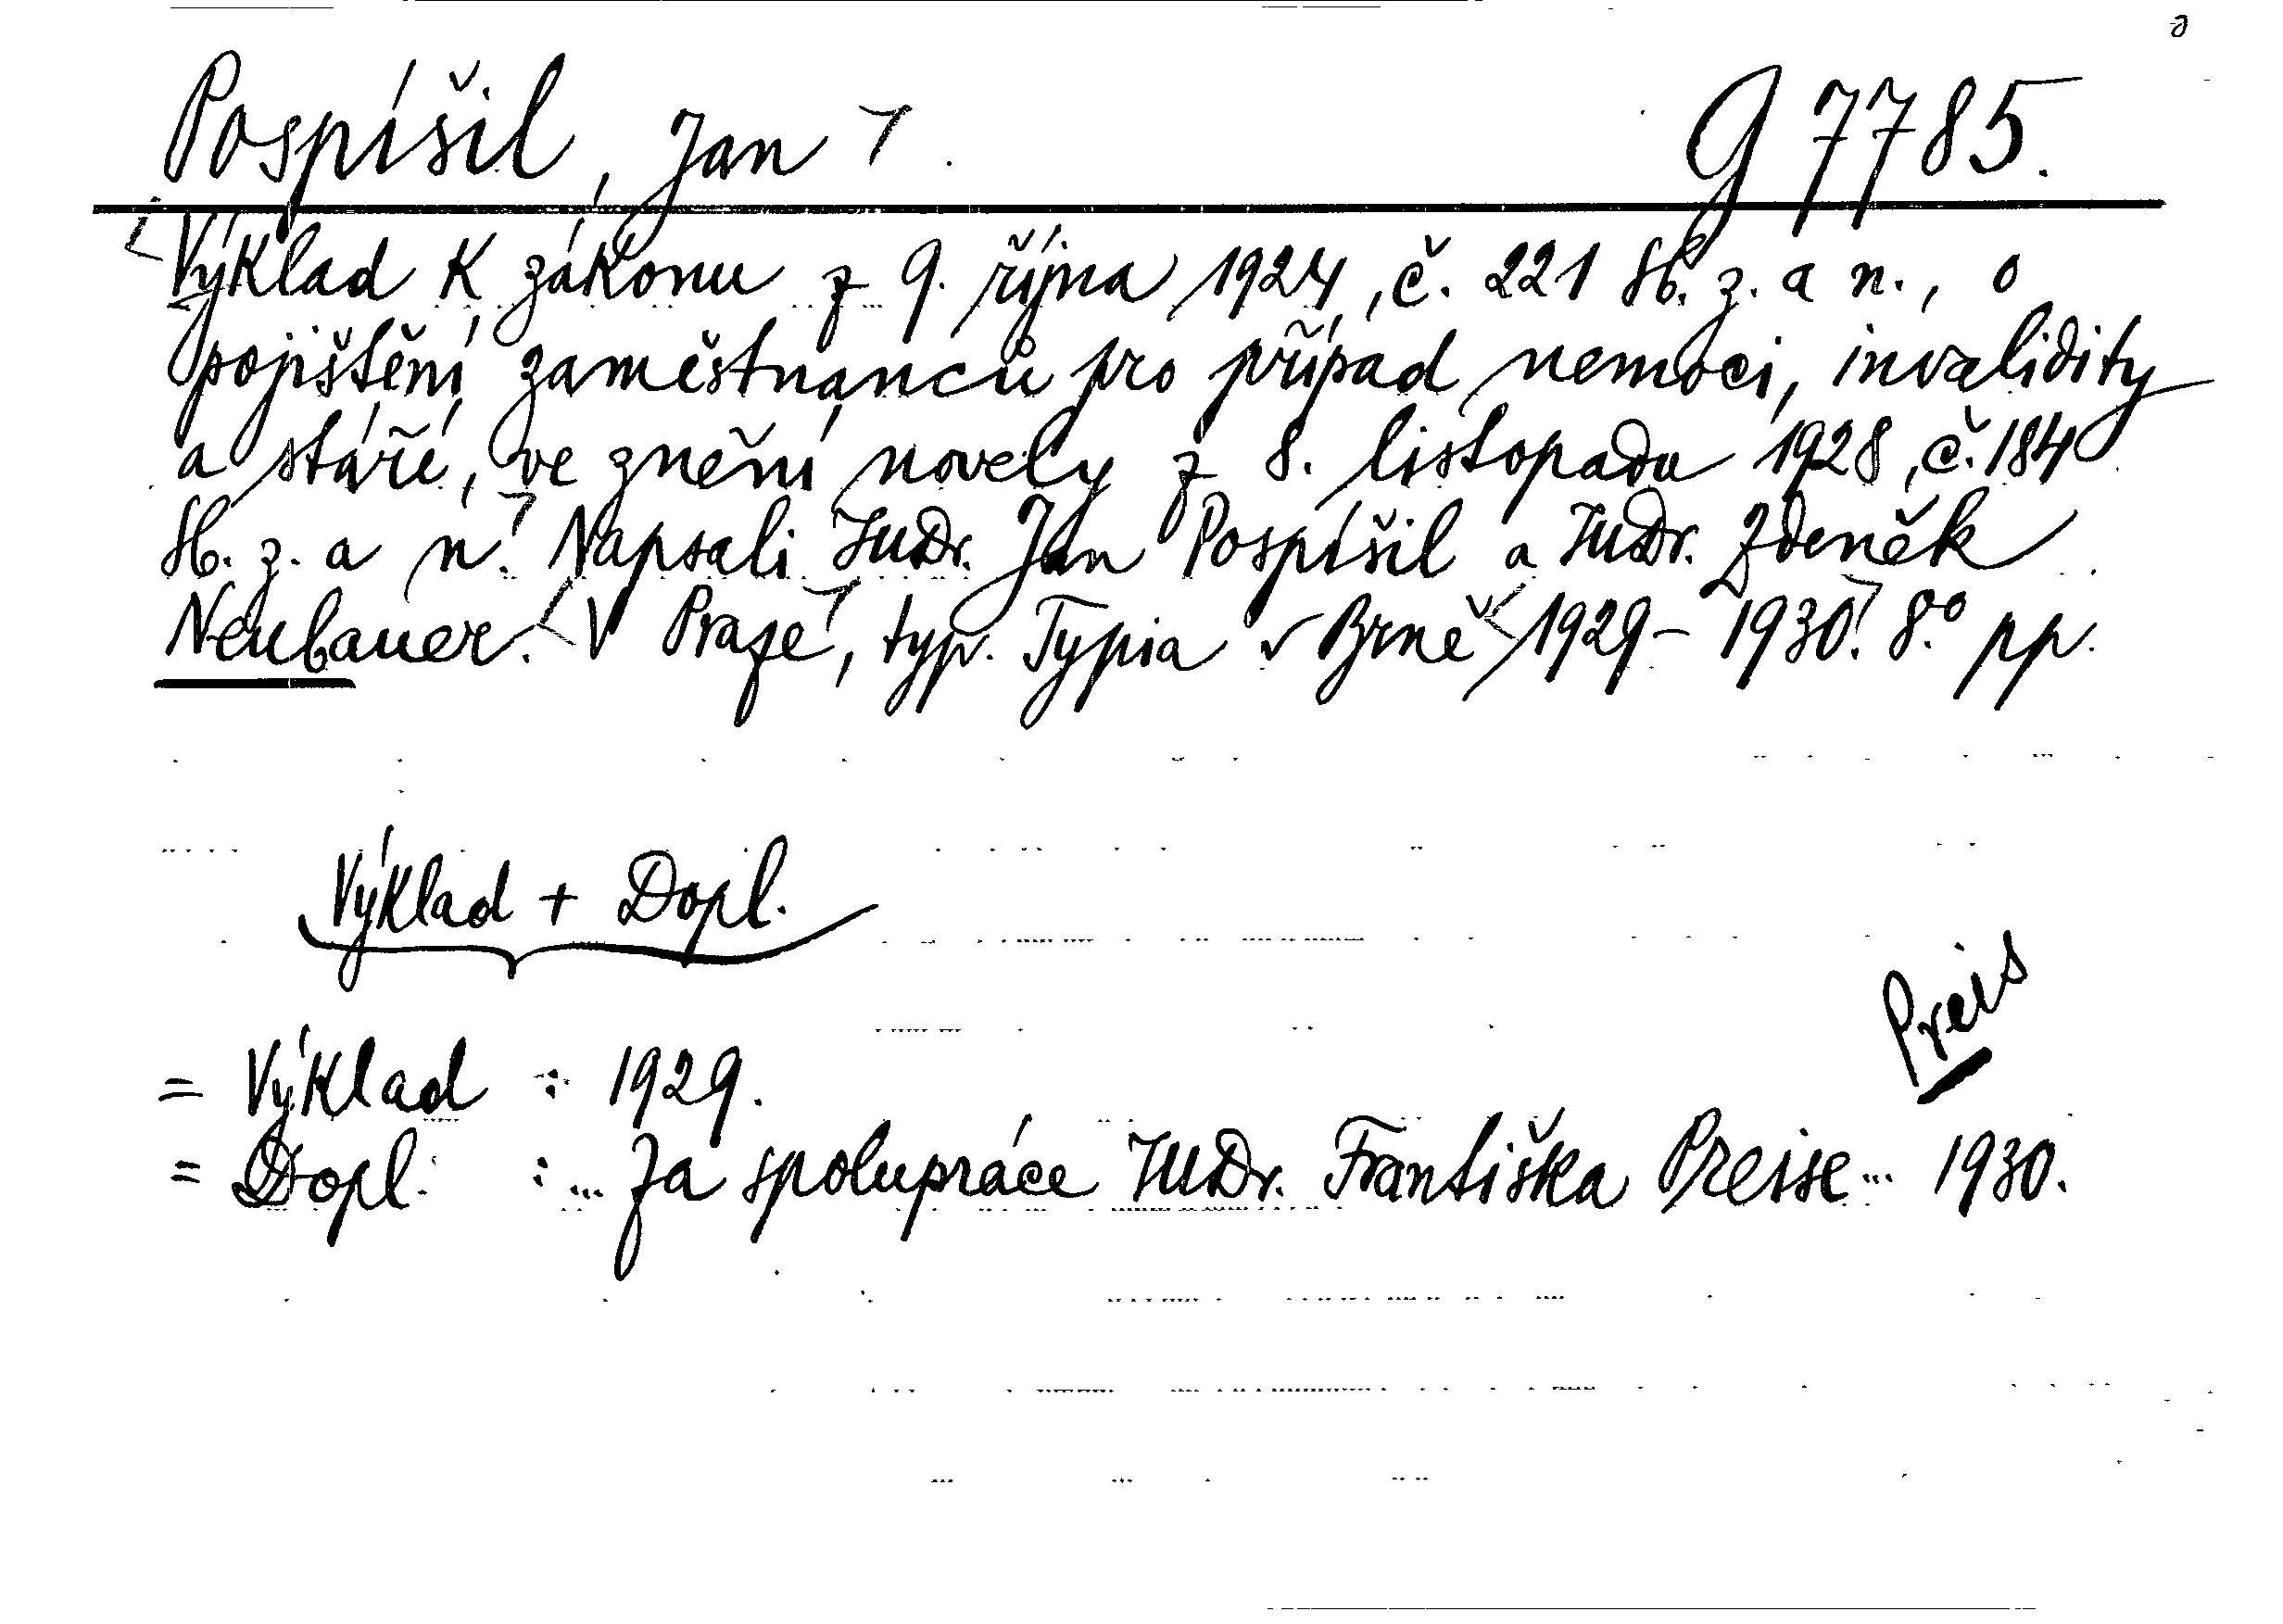 Pospíšil, Jan . g 7785.
Výklad k zákonu z 9. října 1924, č. 221 Sb. z. a n., o
pojištění zaměstnanců pro případ nemoci, invalidity
a stáří, ve znění novely z 8. listopadu 1928, č. 184
Sb. z. a n. Napsali JUDr. Jan Pospíšil a JUDr. Zdeněk
Neubauer. V Praze, typ. Typia v Brně 1929-1930. 8.° pp.
Výklad + Dopl.
Preis
= Výklad : 1929.
= Dopl. : ... Za spolupráce JUDr. Františka Preisse ... 1930.